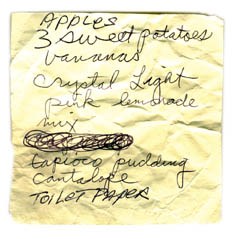 APPLES
3 sweet potatoes
bananas
Crystal Light
pink lemonade
mix
tapioca pudding
cantalope
TOILET PAPER